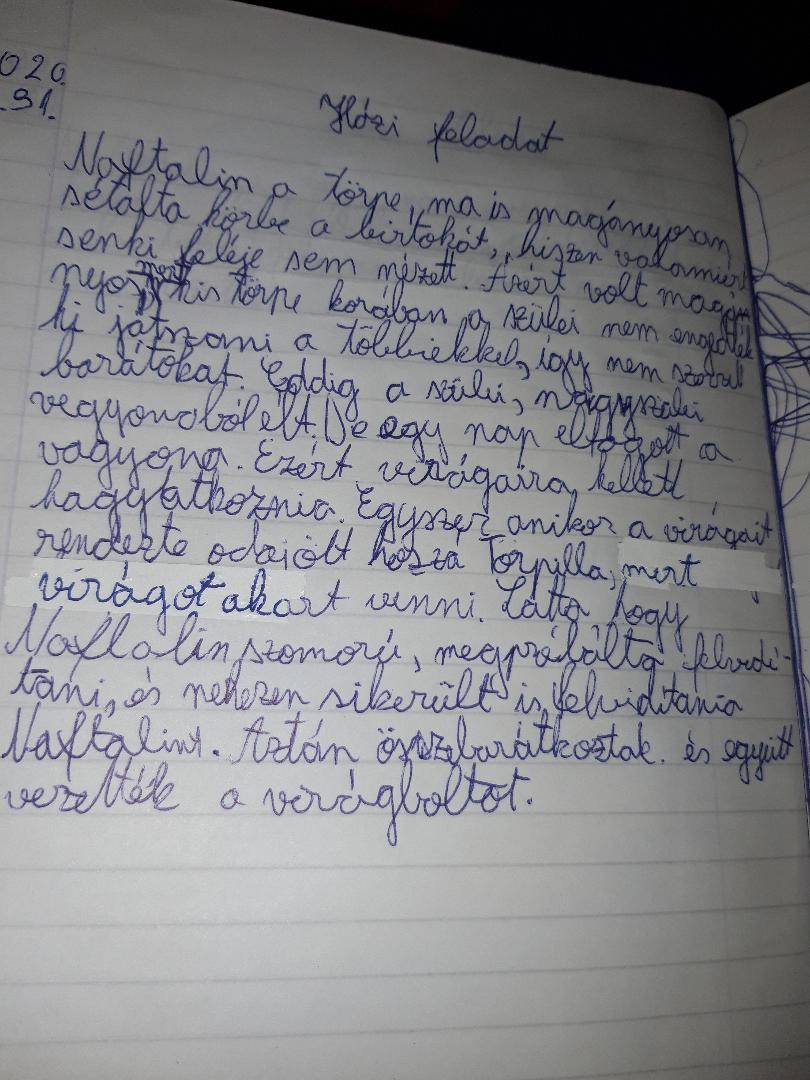 020.
.31.
Házi feladat
Naftalin a törpe, ma is magányosan
sétálta körbe a birtokát, hiszen valamiért
senki feléje sem nézett. Azért volt magá-
nyos mert kis törpe korában a szülei nem engedték
ki játszani a többiekkel, így nem szerzett
barátokat. Eddig a szülei, nagyszülei
vegyonából élt. De egy nap elfogott a
vagyona. Ezért virágaira kellett
hagyatkoznia. Egyszer amikor a virágait
rendezte odajött hozza Törpilla, mert
virágot akart venni. Látta hogy
Naftalin szomorú, megpróbálta felvidí-
tani, és nehezen sikerült is felvidítania
Naftalint. Aztán összebarátkoztak. és együtt
vezették a virágboltot.